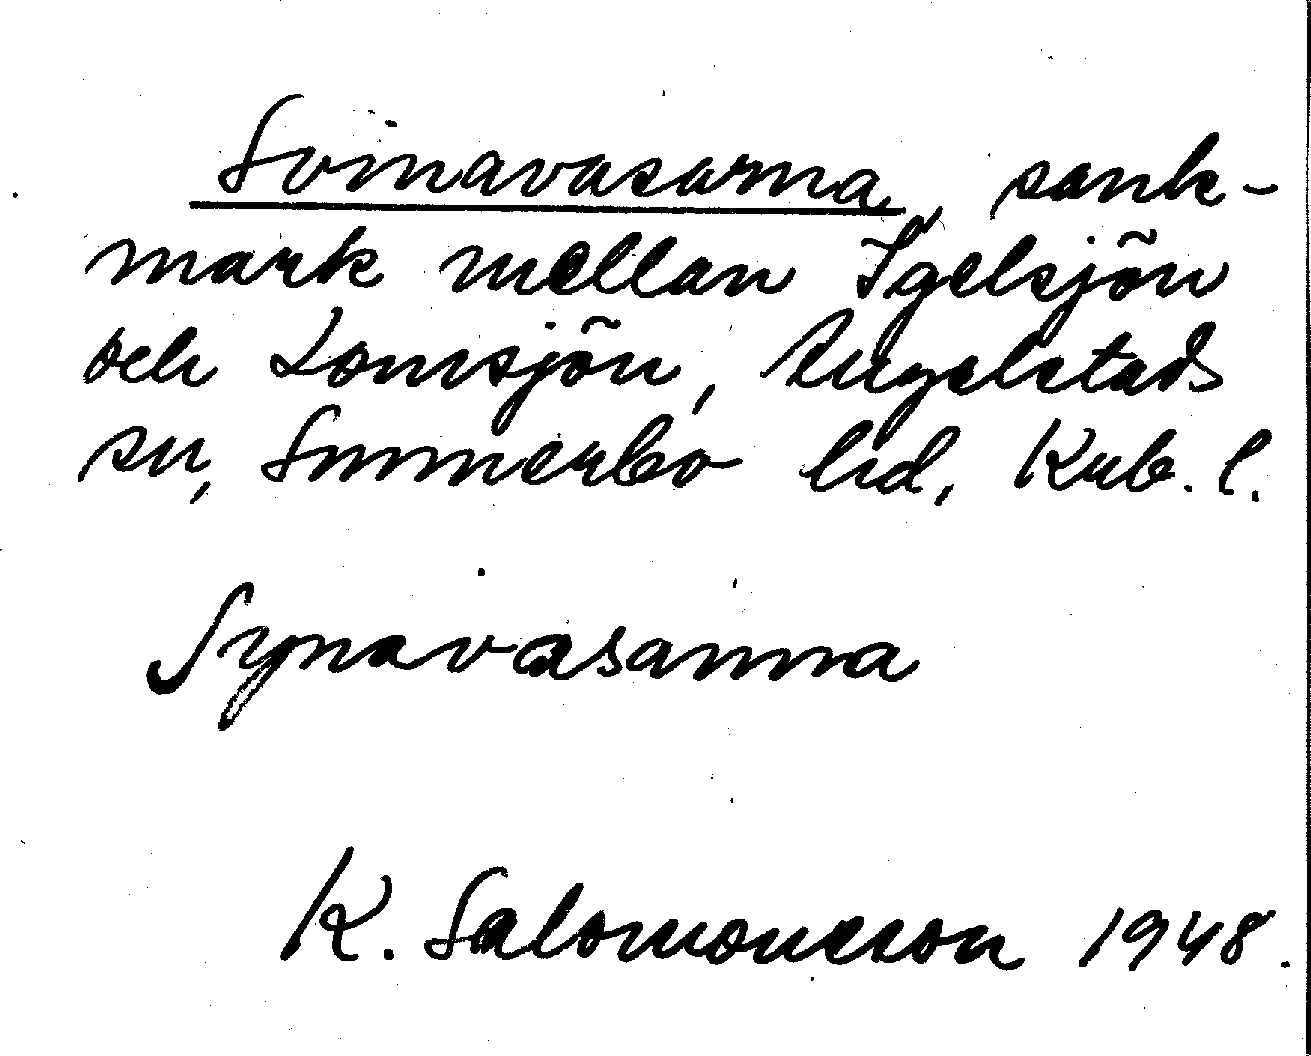 Svinavasarna, sank-
mark mellan Igelsjön
och Lomsjön, Ängelstads
sn, Sunnerbo hd, Krb. l.
Synavasanna
K. Salomonsson 1948.